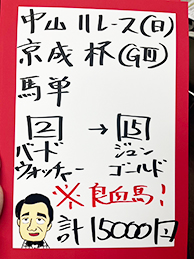 中山11レース(日)
京成杯(GIII)
馬単
2 → 15
バード ジュン
ウォッチャー ゴールド
※良血馬!
計15000円